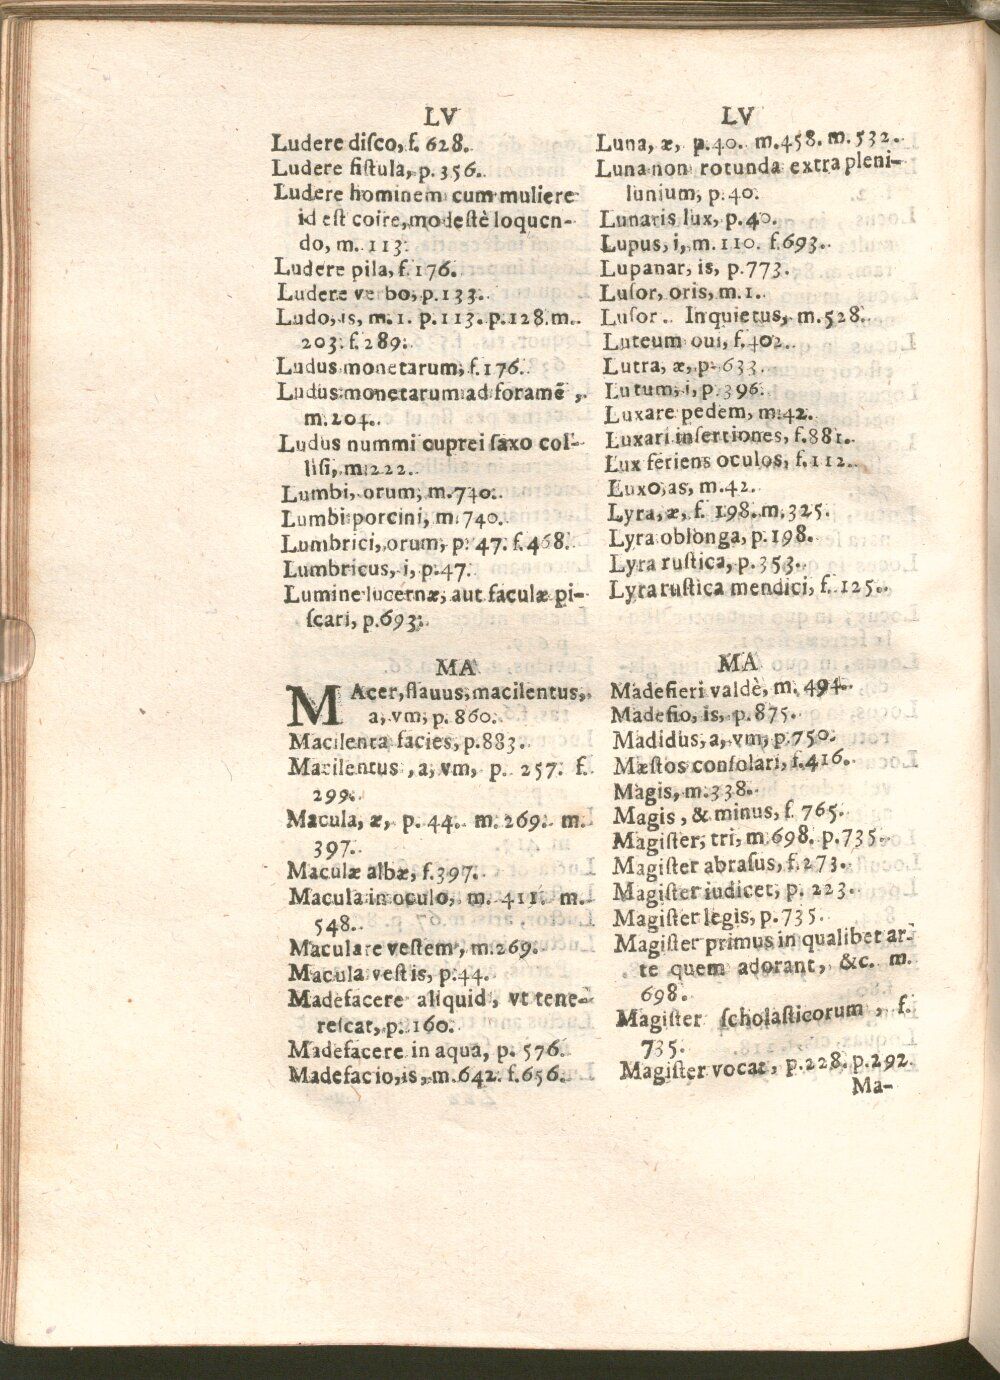 LV
Ludere disco, f. 628.
Ludere fistula, p. 356.
Ludere hominem cum muliere
id est coire, modestè loquen-
do, m. 113.
Ludere pila, f. 176.
Ludere verbo, p. 133.
Ludo, is, m. 1. p. 113. p. 128. m.
203. f. 289.
Ludus monetarum, f. 176.
Ludus monetarum ad foramẽ,
m. 204.
Ludus nummi cuprei saxo col-
lisi, m. 222.
Lumbi, orum, m. 740.
Lumbi porcini, m. 740.
Lumbrici, orum, p. 47. f. 468.
Lumbricus, i, p. 47.
Lumine lucernæ, aut faculæ pi-
scari, p. 693.
MA
MAcer, flauus, macilentus,
a, vm, p. 860.
Macilenta facies, p. 883.
Macilentus, a, vm, p. 257. f.
299.
Macula, æ, p. 44. m. 269. m.
397.
Maculæ albæ, f. 397.
Macula in oculo, m. 411. m.
548.
Maculare vestem, m. 269.
Macula vestis, p. 44.
Madefacere aliquid, vt tene-
rescat, p. 160.
Madefacere in aqua, p. 576.
Madefacio, is, m. 642. f. 656.
LV
Luna, æ, p. 40. m. 458. m. 532.
Luna non rotunda extra pleni-
lunium, p. 40.
Lunaris lux, p. 40.
Lupus, i, m. 110. f. 693.
Lupanar, is, p. 773.
Lusor, oris, m. 1.
Lusor. Inquietus, m. 528.
Luteum oui, f. 402.
Lutra, æ, p. 633.
Lutum, i, p. 396.
Luxare pedem, m. 42.
Luxari insertiones, f. 881.
Lux feriens oculos, f. 112.
Luxo, as, m. 42.
Lyra, æ, f. 198. m. 325.
Lyra oblonga, p. 198.
Lyra rustica, p. 353.
Lyra rustica mendici, f. 125.
MA
Madefieri valdè, m. 494.
Madefio, is, p. 875.
Madidus, a, vm, p. 750.
Mæstos consolari, f. 416.
Magis, m. 338.
Magis, & minus, f. 765.
Magister, tri, m. 698. p. 735.
Magister abrasus, f. 273.
Magister iudicet, p. 223.
Magister legis, p. 735.
Magister primus in qualibet ar-
te quem adorant, &c. m.
698.
Magister scholasticorum, f.
735.
Magister vocat, p. 228. p. 292.
Ma-